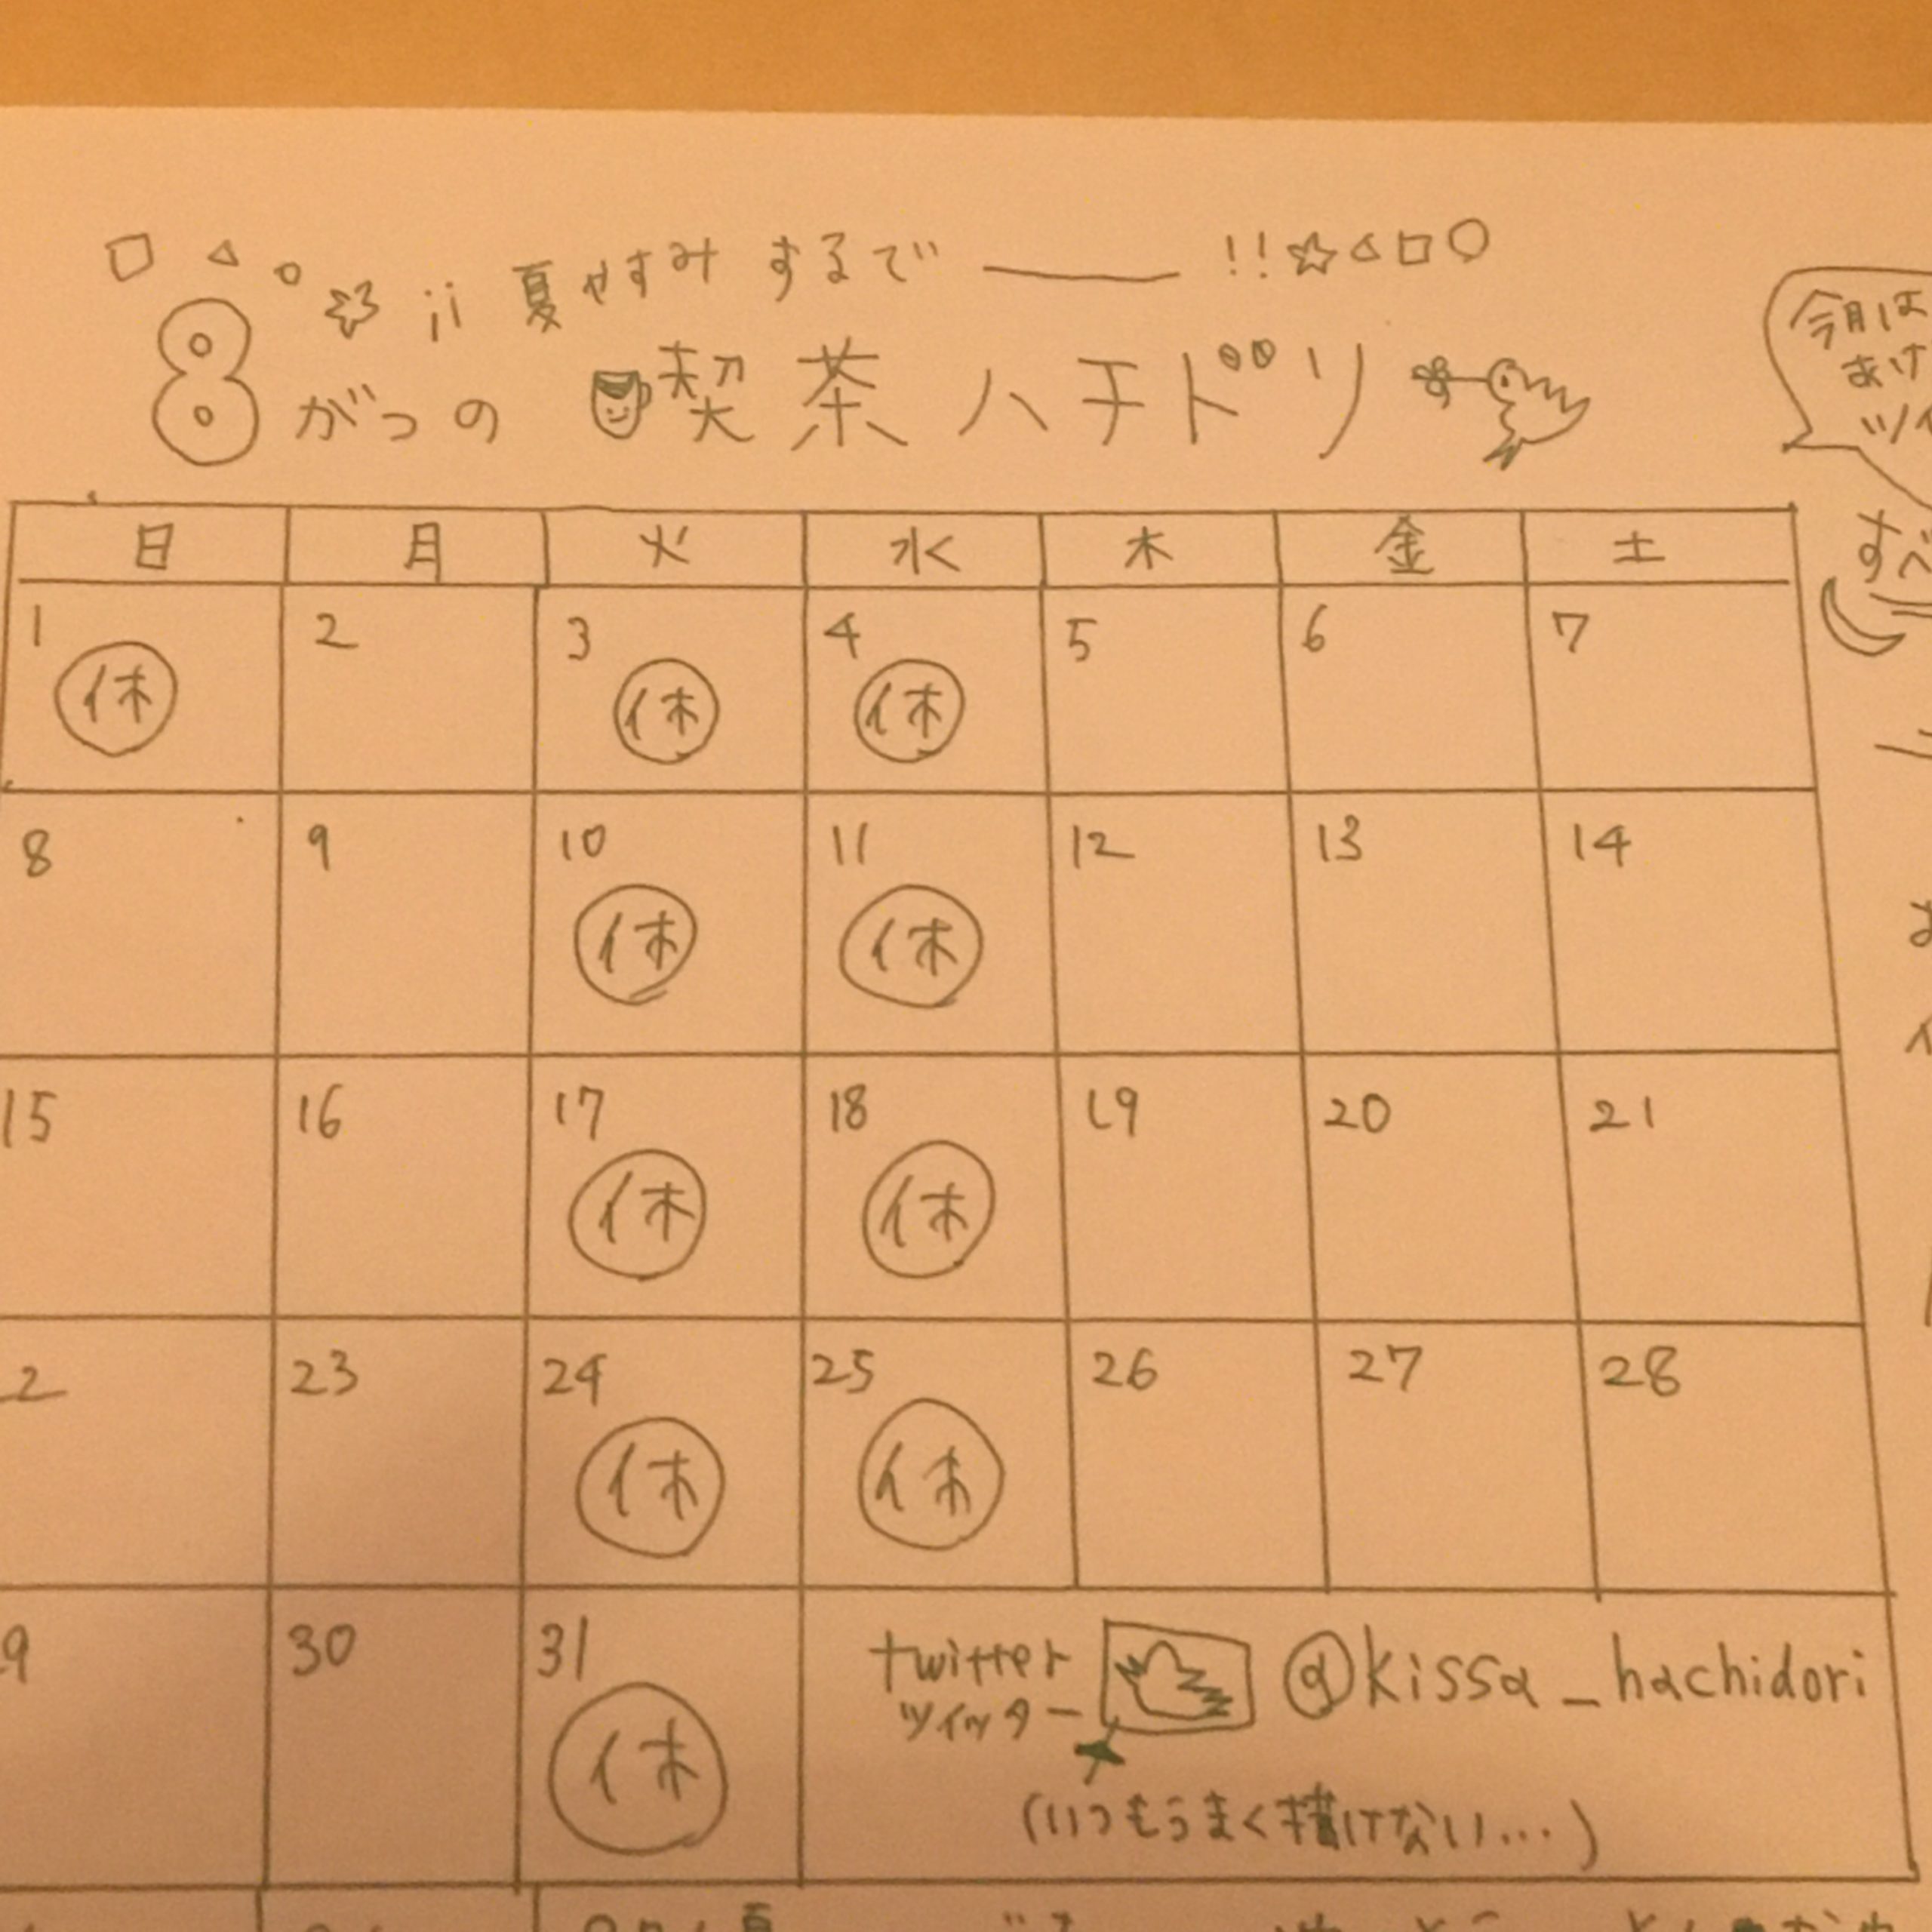 !! 夏やすみするで——!!
8がつの 喫茶ハチドリ
今月は
あけ
ツイ
すべ
日 月 火 水 木 金 土
1 2 3 4 5 6 7
休 休 休
8 9 10 11 12 13 14
休 休
15 16 17 18 19 20 21
休 休
2 23 24 25 26 27 28
休 休
9 30 31
休
twitter @kissa_hachidori
ツイッター
(いつもうまく描けない…)